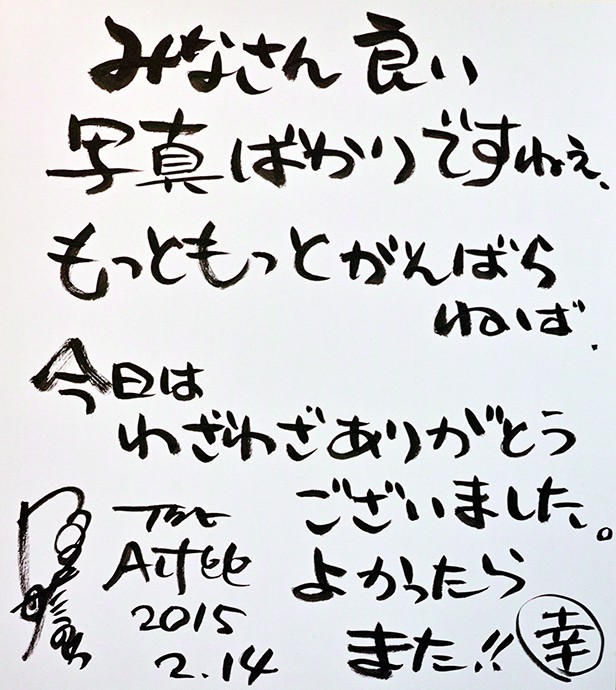 みなさん良い
写真ばかりですねぇ、
もっともっとがんばら
ねば.
今日は
わざわざありがとう
ございました。
よかったら
また!! 幸
2015
2.14